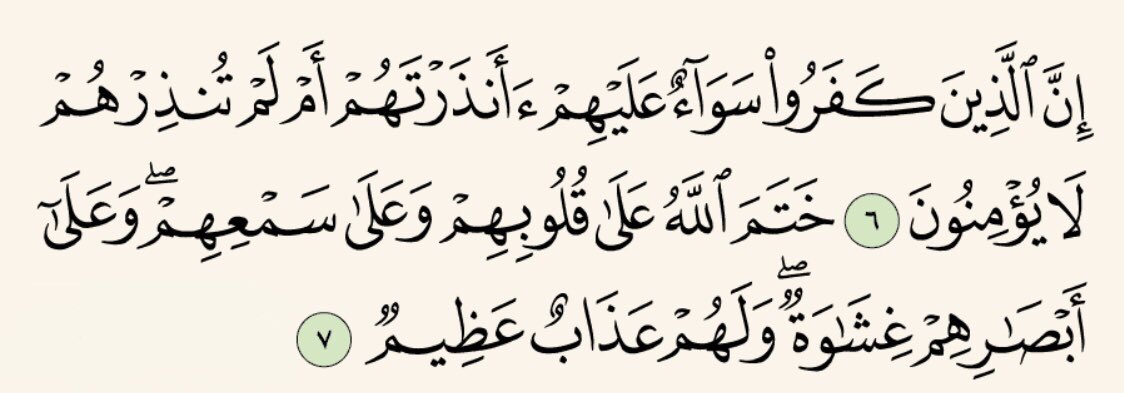 إِنَّ ٱلَّذِينَ كَفَرُوا۟ سَوَآءٌ عَلَيْهِمْ ءَأَنذَرْتَهُمْ أَمْ لَمْ تُنذِرْهُمْ
لَا يُؤْمِنُونَ ٦ خَتَمَ ٱللَّهُ عَلَىٰ قُلُوبِهِمْ وَعَلَىٰ سَمْعِهِمْ ۖ وَعَلَىٰٓ
أَبْصَـٰرِهِمْ غِشَـٰوَةٌ ۖ وَلَهُمْ عَذَابٌ عَظِيمٌ ٧